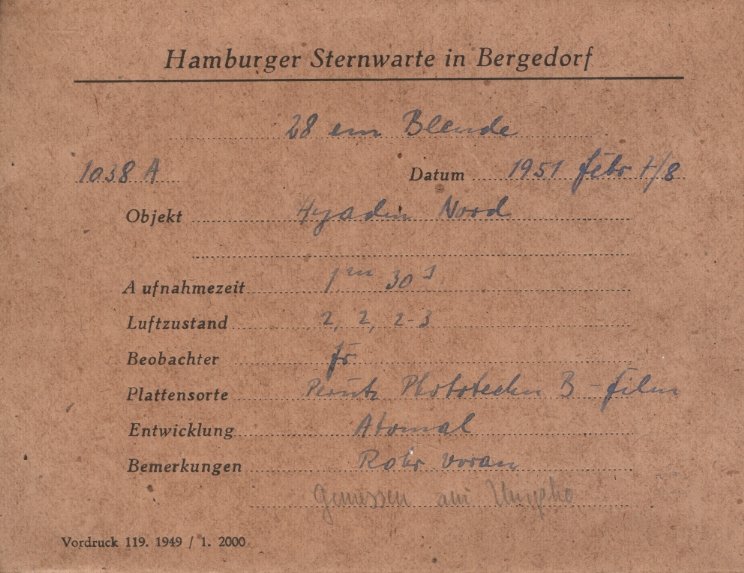 Hamburger Sternwarte in Bergedorf
28 cm Blende
1038 A Datum 1951 febr 7/8
Objekt Hyaden Nord
Aufnahmezeit 1m 30s
Luftzustand 2, 2, 2-3
Beobachter fr
Plattensorte Perutz Phototechn B-film
Entwicklung Atomal
Bemerkungen Rohr voran
Gemessen am
Vordruck 119. 1949 / 1. 2000